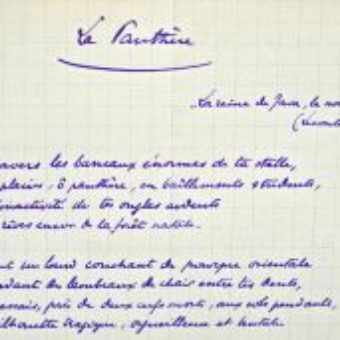 La Panthère
La reine de Java, la noi
(Leconte
travers les barreaux énormes de ta stalle,
plains, ô panthère, en baillements stridents,
inactivité de tes ongles ardents
rêves encor de la forêt natale.
un lourd couchant de pourpre orientale
lambeaux de chair entre tes dents,
près de deux cups morts, aux cols pendants,
silhouette tragique, orgueilleuse et brutale.